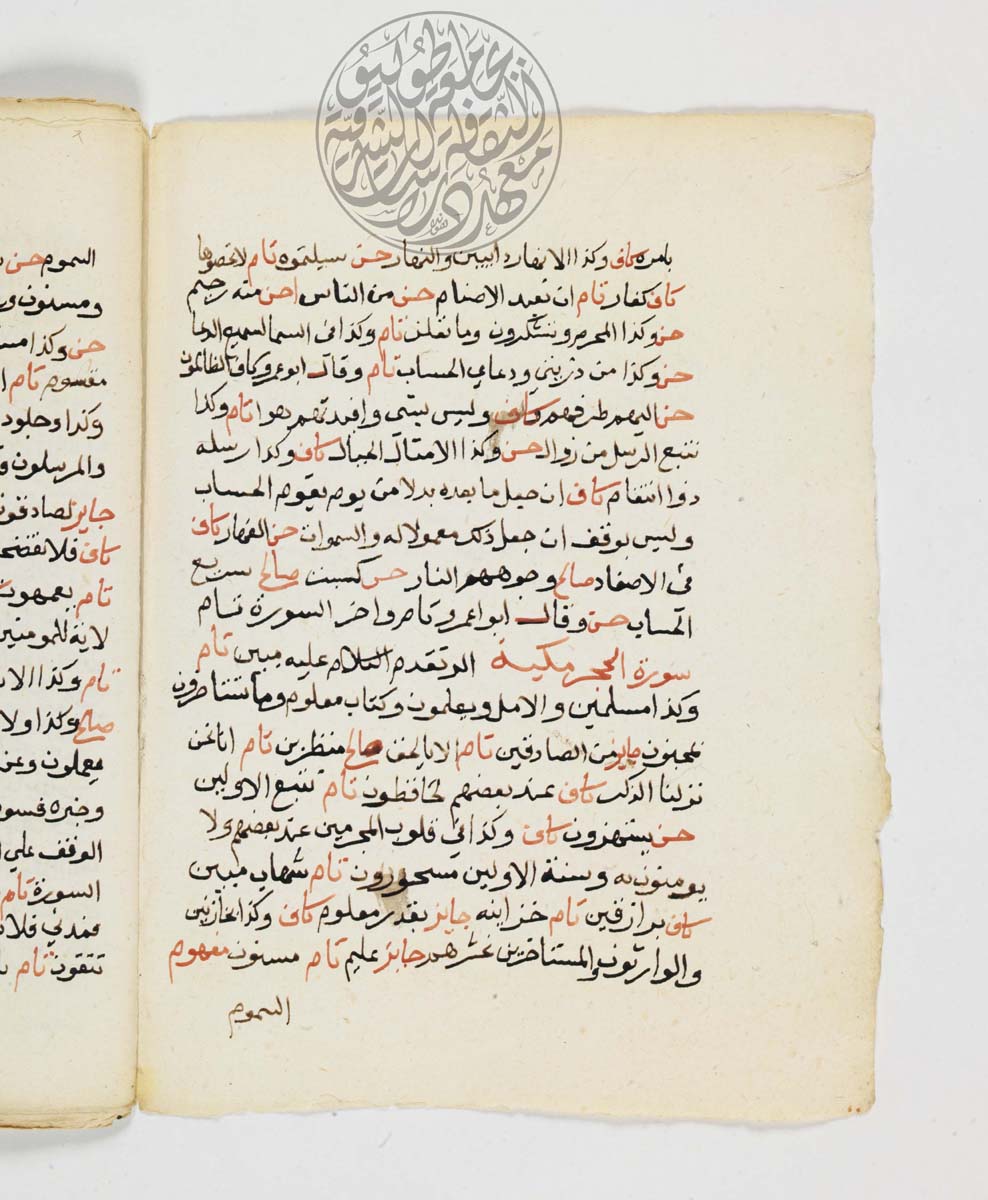 بامره كاف وكذا الانهار دايبين والنهار حسن سيلتموه تام لا تحصوها
كاف كفار تام ان نعبد الاصنام حسن من الناس احسن منه رحيم
حسن وكذا المحرم ويشكرون وما نعلن تام وكذا في السما لسميع الدعا
حسن وكذا من ذريتي ودعاي الحساب تام وقال ابو عمرو كاف الظالمون
حسن اليهم طرفهم كاف وليس بشي وافيدتهم هوا تام وكذا
نتبع الرسل من زوال حسن وكذا الامثال الجبال كاف وكذا رسله
ذوا انتقام كاف ان جعل ما بعده بدلا من يوم يقوم الحساب
وليس بوقف ان جعل ذلك معمولا له والسموات حسن القهار كاف
في الاصفاد صالح وجوههم النار حسن كسبت صالح سريع
الحساب حسن وقال ابو عمرو تام واخر السورة تام
سورة الحجر مكية الر تقدم الكلام عليه مبين تام
وكذا مسلمين والامل ويعلمون وكتاب معلوم وما يستاخرون
لمجنون جايز من الصادقين تام الا بالحق صالح منظرين تام انا نحن
نزلنا الذكر كاف عند بعضهم لحافظون تام شيع الاولين
حسن يستهزون كاف وكذا في قلوب المجرمين عند بعضهم ولا
يومنون به وسنة الاولين مسحورون تام شهاب مبين
كاف برازقين تام خزاينه جايز بقدر معلوم كاف وكذا بخازنين
والوارثون والمستاخرين يحشرهم جايز عليم تام مسنون مفهوم
السموم
السموم حسن
ومسنون
حسن وكذا
مقسوم تام
وكذا وجلود
والمرسلون
جايز لصادقون
كاف فلا تفضحون
تام يعمهون
لاية للمومنين
تام وكذا
صالح وكذا ولا
يعملون وعن
وخبره
الوقف علي
السورة تام
تتقون تام
معهد دراسات الثقافة الشرقية جامعة طوكيو